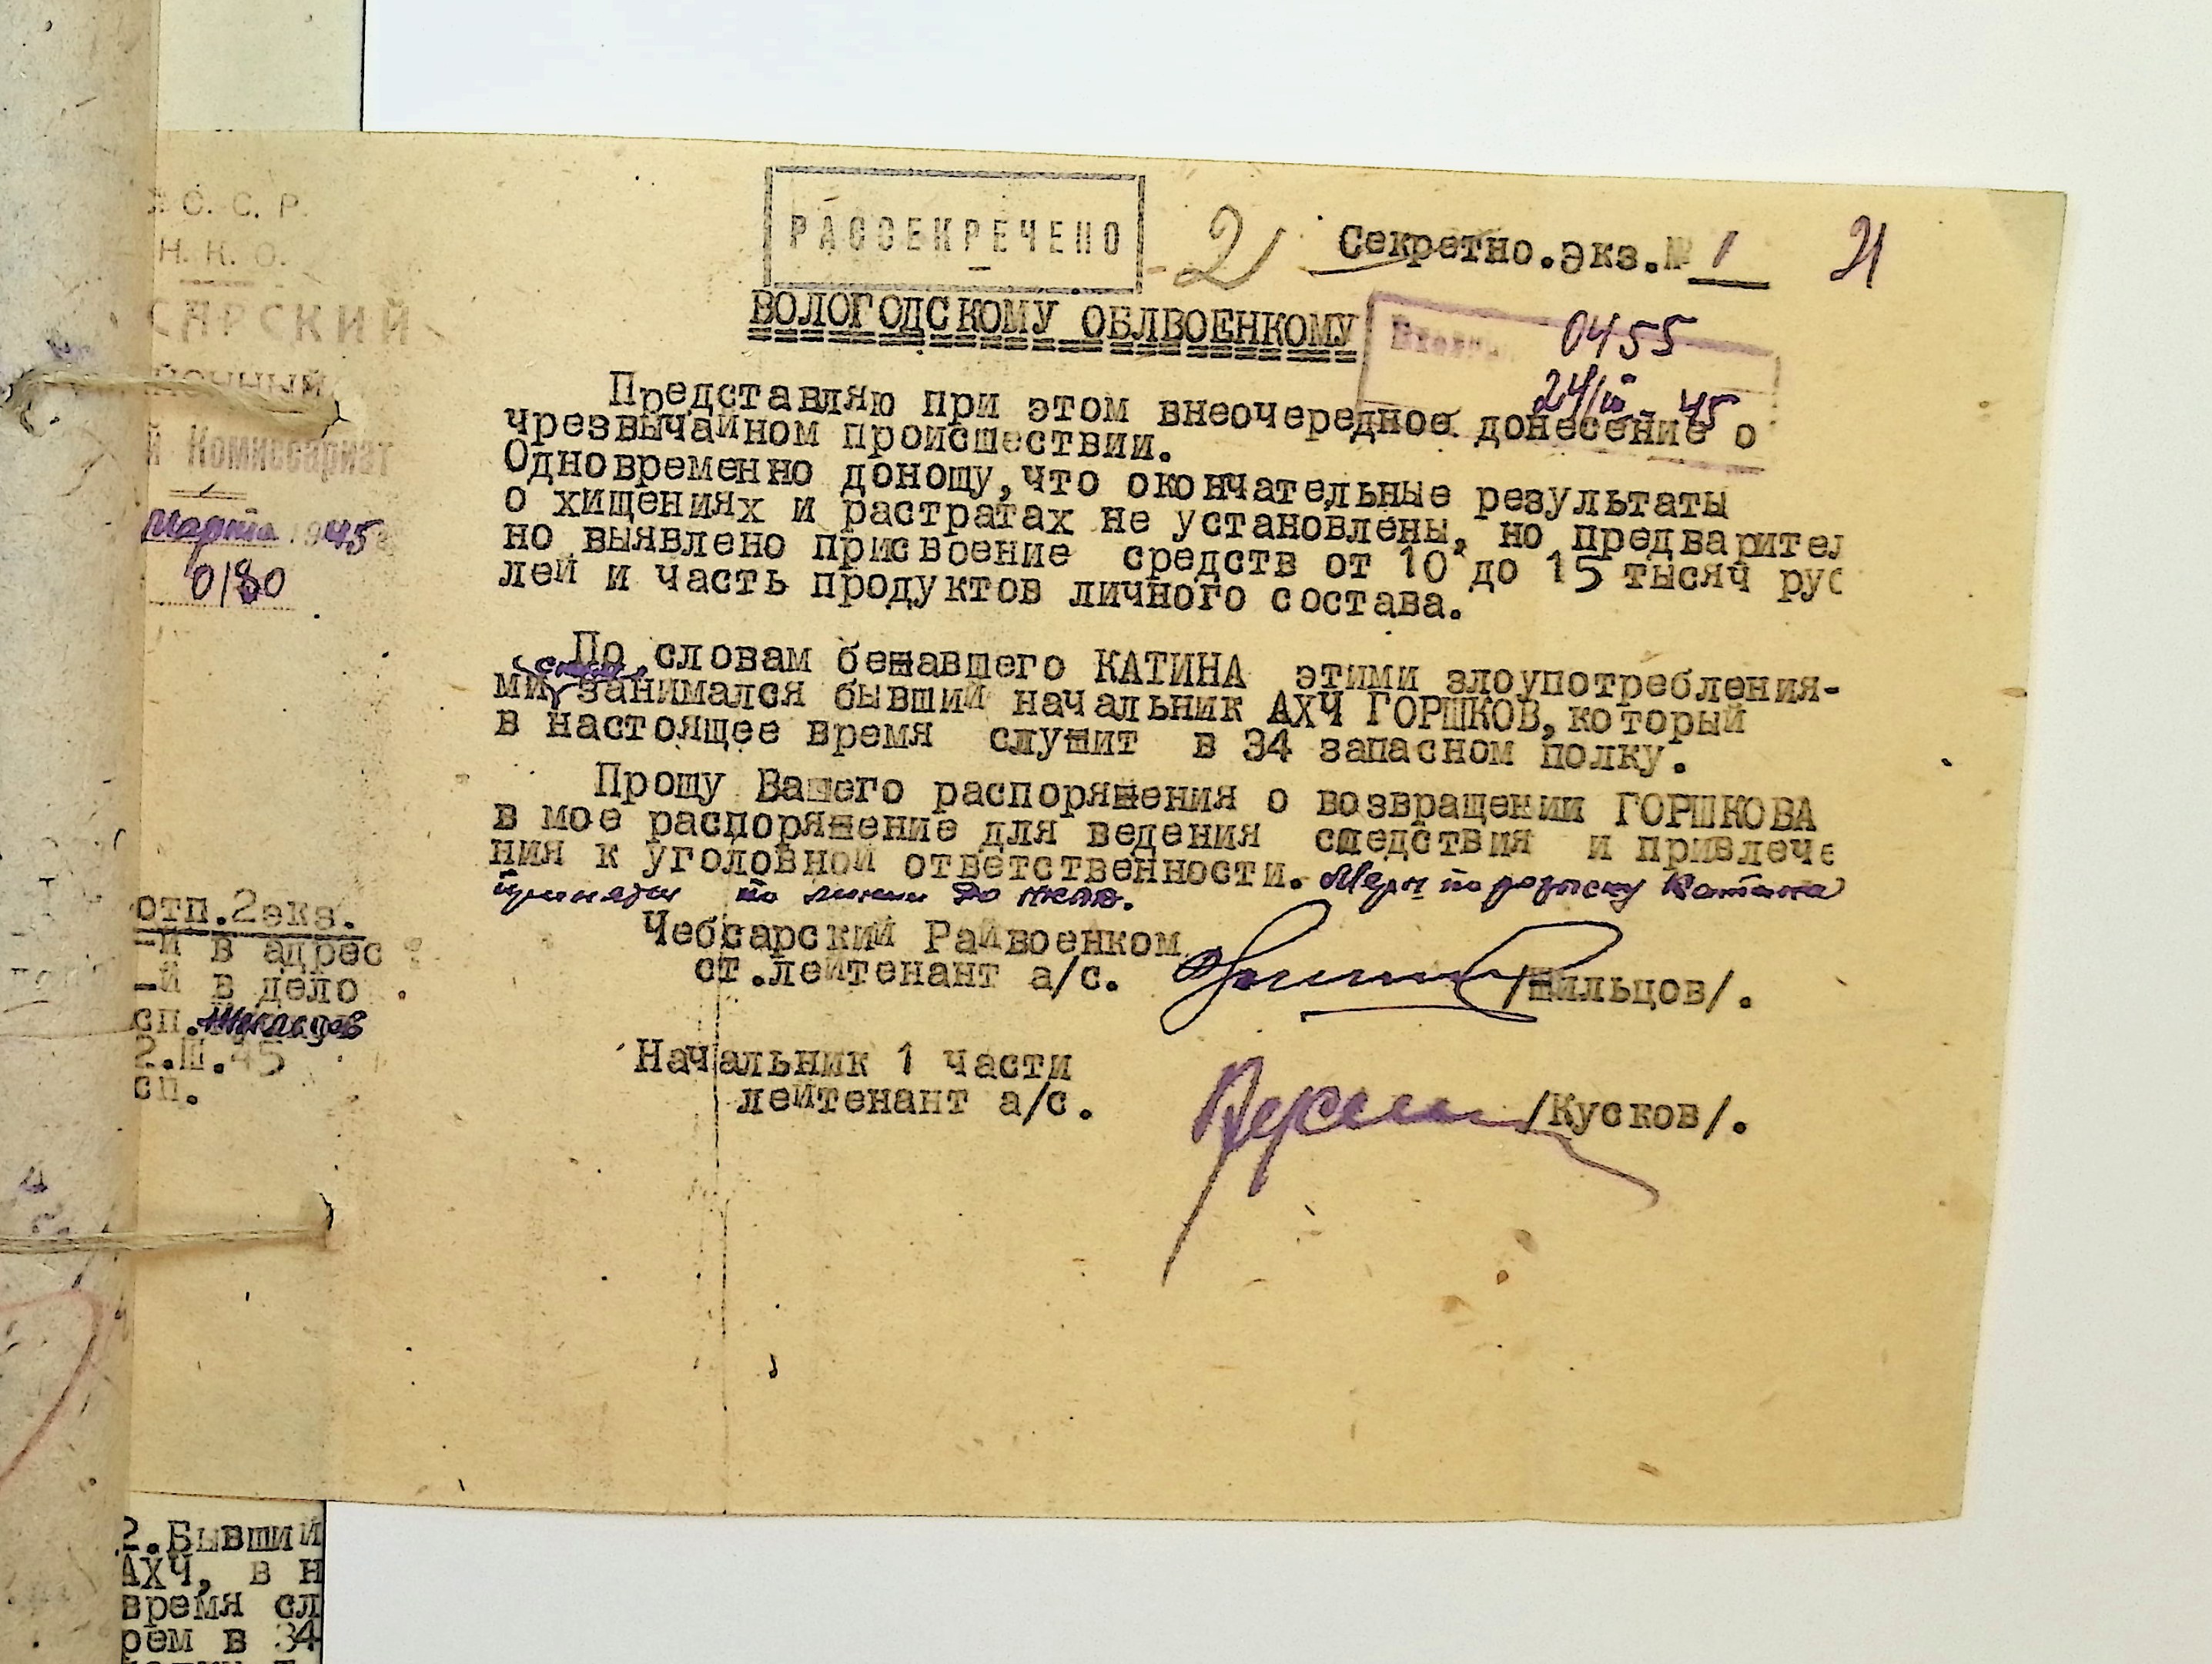 С. С. Р.
Н. К. О.
САРСКИЙ
й Комиссариат
марта 1945
0180
РАССЕКРЕЧЕНО
21
Секретно.экз.№ 1
21
ВОЛОГОДСКОМУ ОБЛВОЕНКОМУ
0455
24/III 45
Представляю при этом внеочередное донесение о
чрезвычайном происшествии.
Одновременно доношу,что окончательные результаты
о хищениях и растратах не установлены, но предварител
но выявлено присвоение средств от 10 до 15 тысяч руб
лей и часть продуктов личного состава.
По словам бежавшего КАТИНА этими злоупотребления-
ми занимался бывший начальник АХЧ ГОРШКОВ,который
в настоящее время служит в 34 запасном полку.
Прошу Вашего распоряжения о возвращении ГОРШКОВА
в мое распоряжение для ведения следствия и привлече
ния к уголовной ответственности. Меры по розыску Катина
приняты по линии РО НКВД.
Чебсарский Райвоенком
ст.лейтенант а/с. /Шильцов/.
Начальник 1 части
лейтенант а/с. /Кусков/.
отп.2экз.
-й в адрес
-й в дело
сп.
2.Ш.45
сп.
2.Бывший
АХЧ, в н
время сл
рем в 34